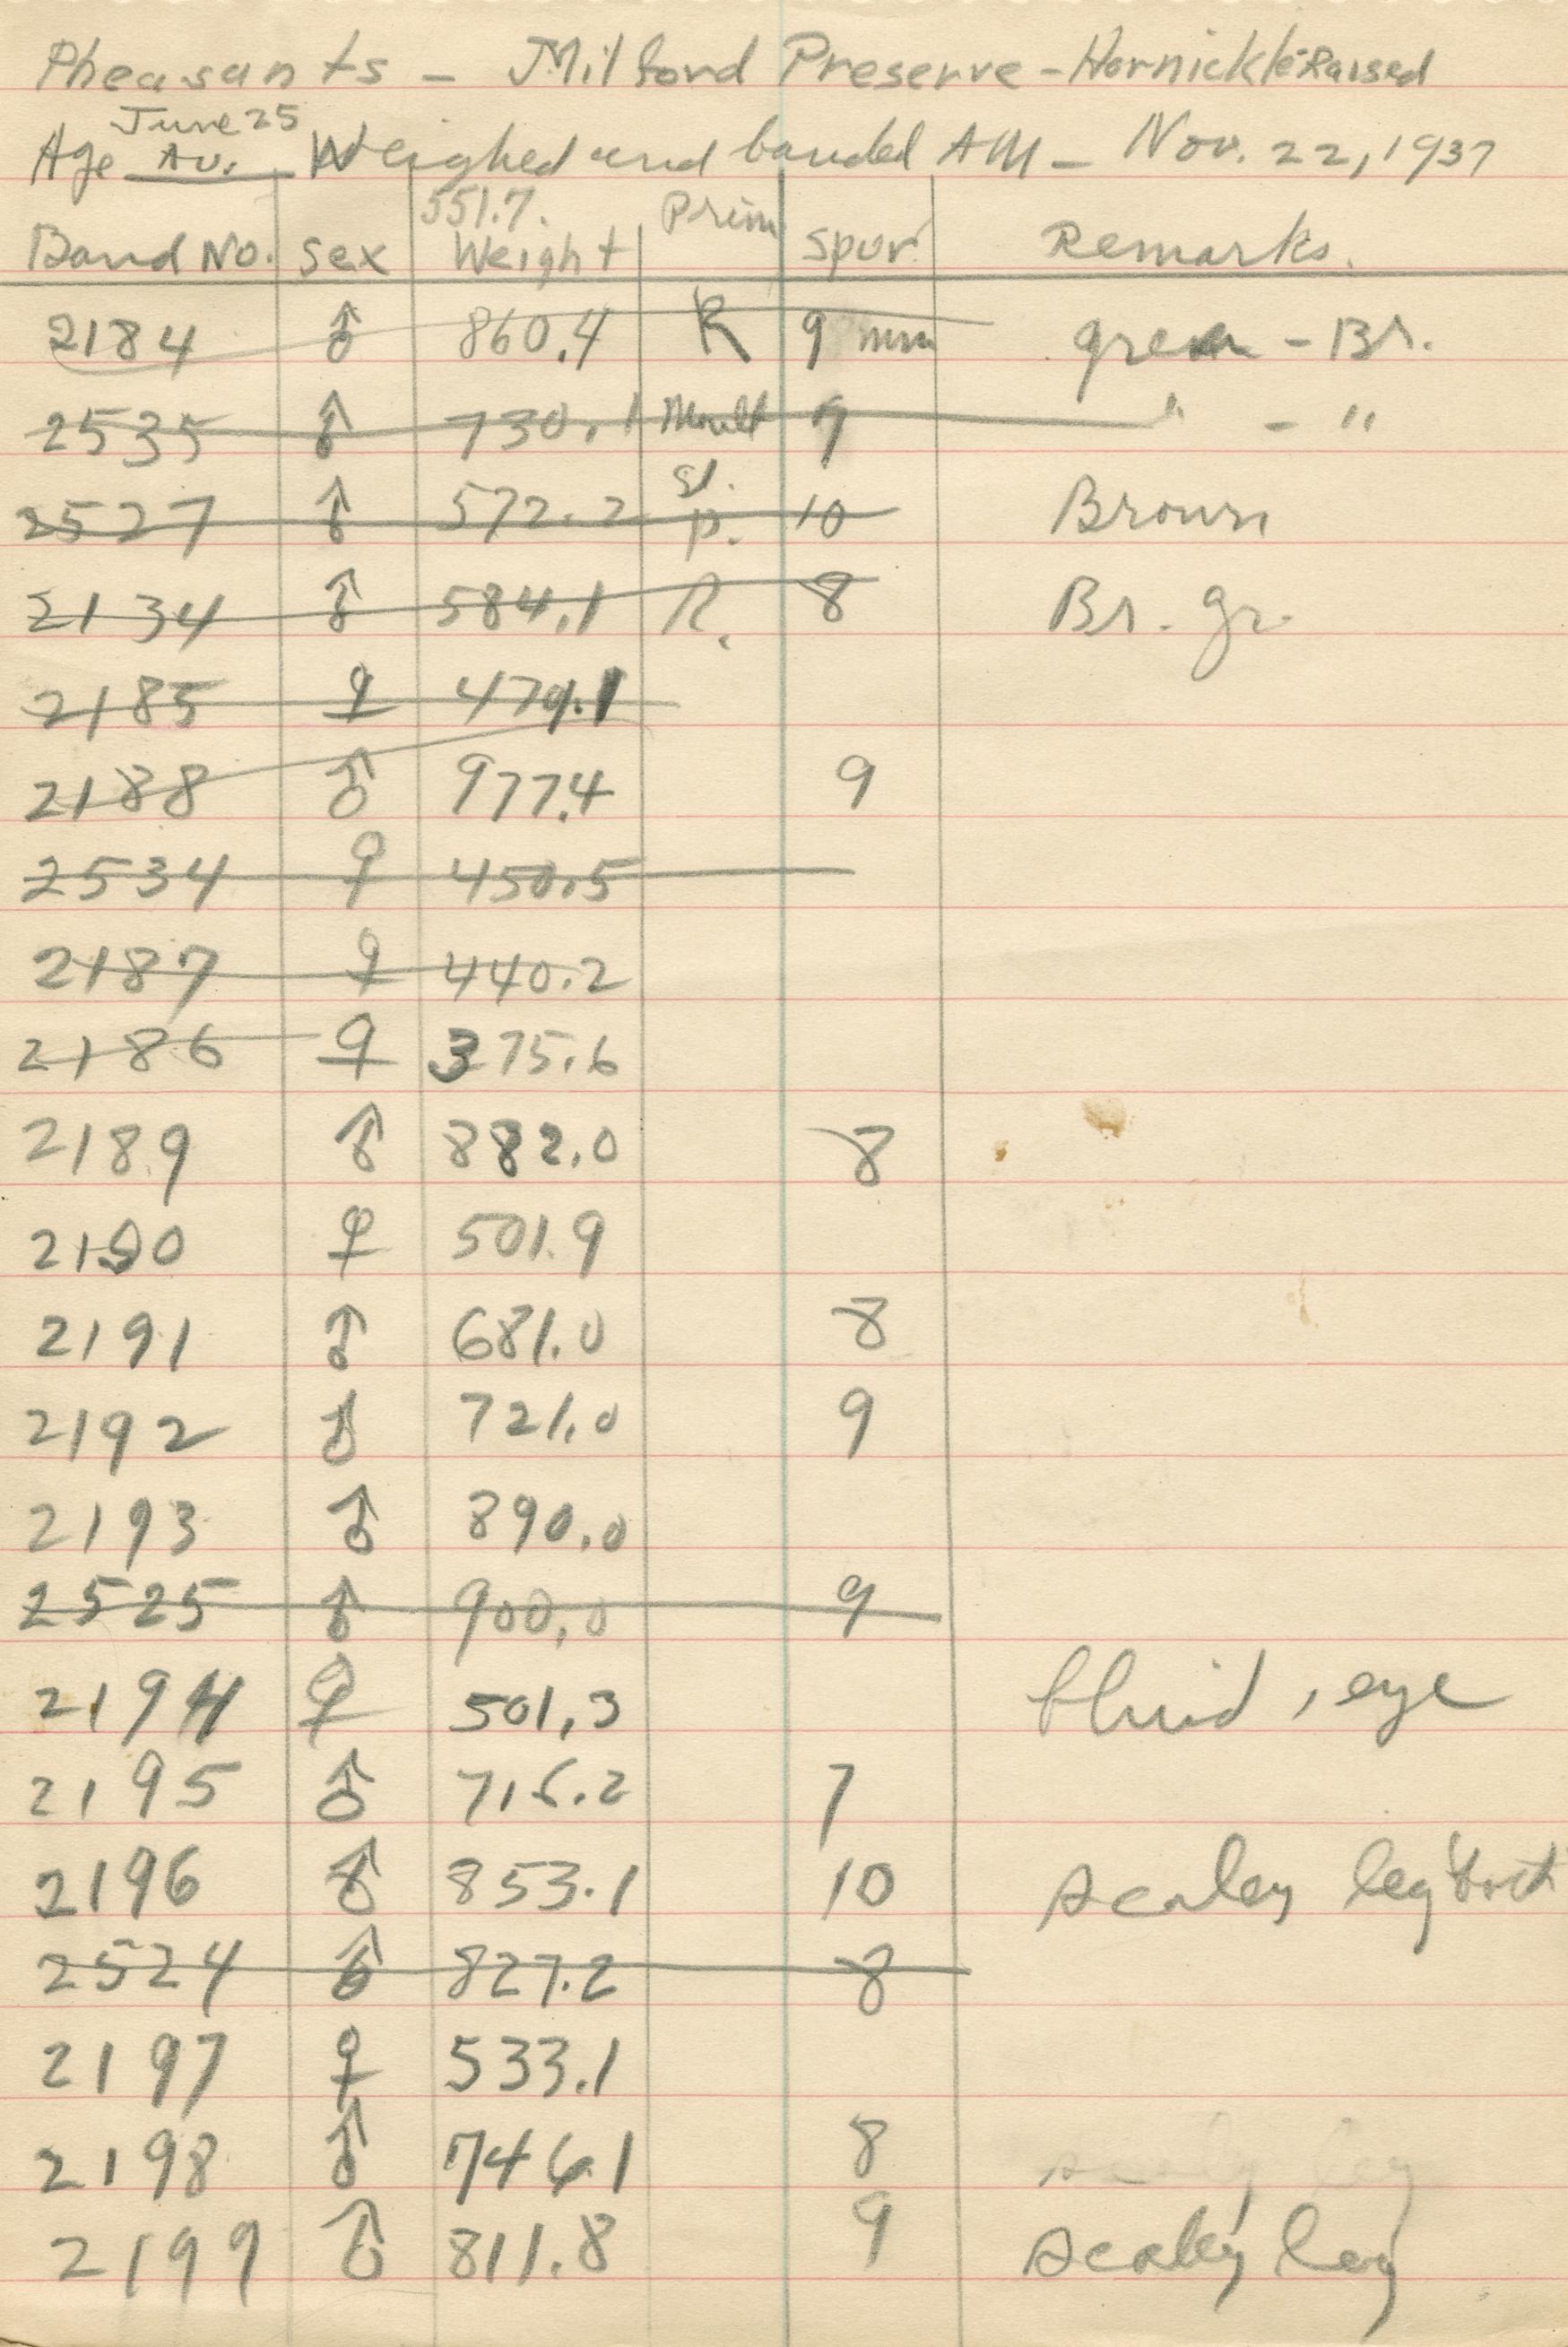 Pheasants - Milford Preserve - Hornickle Raised
June 25
Age Av. Weighed and banded AM - Nov. 22, 1937
551.7. Prim
Band No. Sex Weight Spur Remarks.
2184 ♂ 860.4 R 9 mm green - Br.
2535 ♂ 730.1 Moult 9 " - "
2527 ♂ 572.2 sl. p. 10 Brown
2134 ♂ 584.1 R. 8 Br. gr.
2185 ♀ 479.1
2188 ♂ 977.4 9
2534 ♀ 450.5
2187 ♀ 440.2
2186 ♀ 375.6
2189 ♂ 882.0 8
2190 ♀ 501.9
2191 ♂ 681.0 8
2192 ♂ 721.0 9
2193 ♂ 890.0
2525 ♂ 900.0 9
2194 ♀ 501.3 , eye
2195 ♂ 716.2 7
2196 ♂ 853.1 10 scaley leg
2524 ♂ 827.2 8
2197 ♀ 533.1
2198 ♂ 746.1 8 scaly leg
2199 ♂ 811.8 9 scaley leg